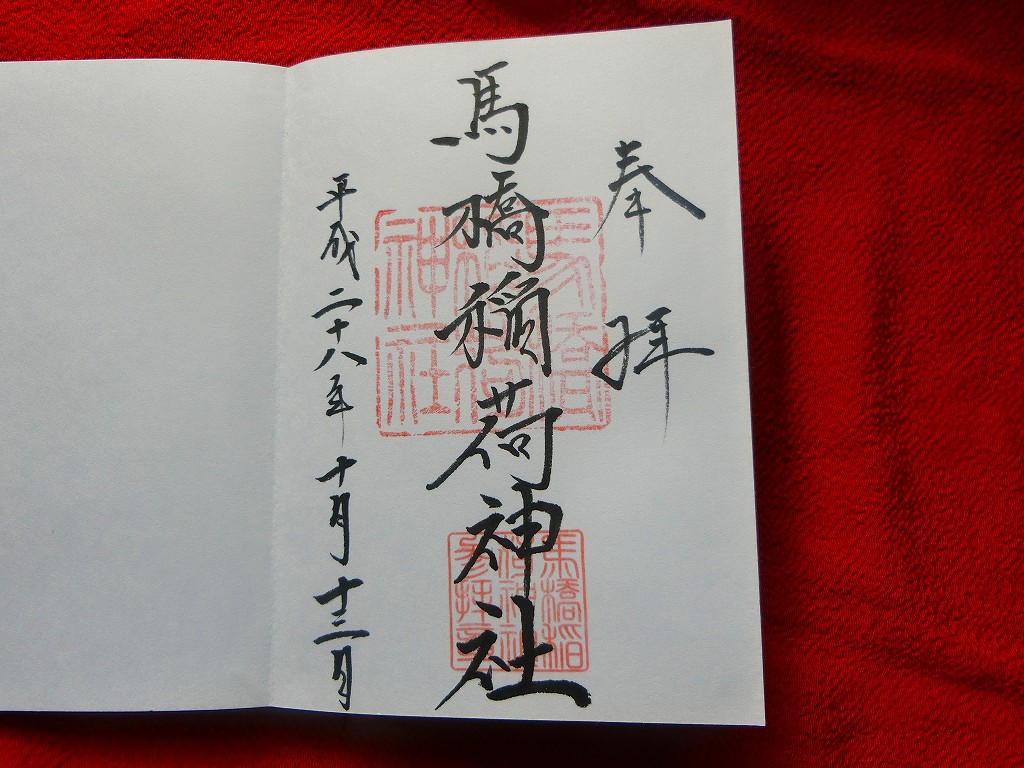 奉拝
馬橋稲荷神社
平成二十八年十月十三日
馬橋
稲荷
神社
馬橋稲
荷神社
参拝章